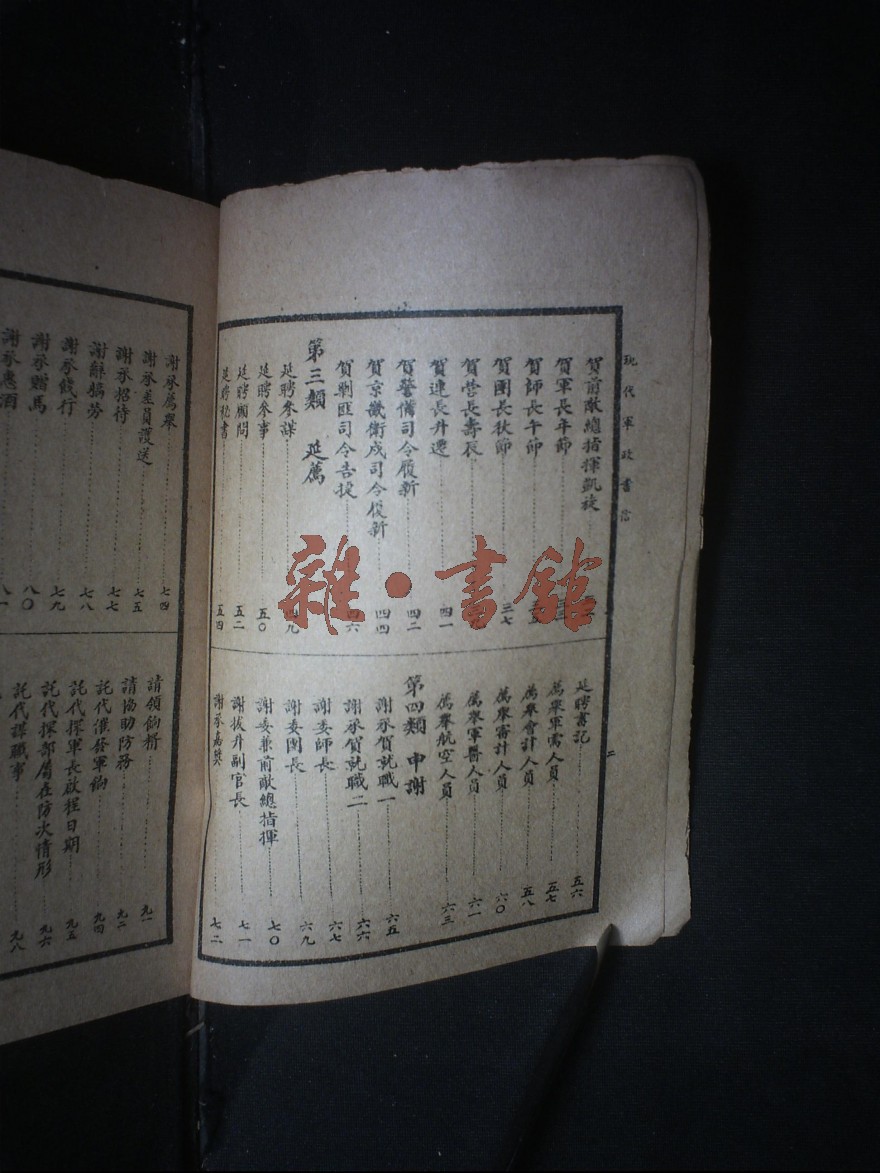 現代軍政書信
賀前敵總指揮凱旋
賀軍長年節
賀師長午節
賀團長秋節 三七
賀營長壽辰
賀連長升遷 四一
賀警備司令履新 四二
賀京畿衛戍司令復新 四四
賀剿匪司令告捷 四六
第三類 延薦
延聘參謀 四九
延聘參事 五〇
延聘顧問 五二
延聘秘書 五四
延聘書記 五六
薦舉軍需人員 五七
薦舉會計人員 五八
薦舉審計人員 六〇
薦舉軍醫人員 六一
薦舉航空人員 六三
第四類 申謝
謝承賀就職一 六五
謝承賀就職二 六六
謝委師長 六七
謝委團長 六九
謝委兼前敵總指揮 七〇
謝拔升副官長 七一
謝承嘉獎 七二
二
謝承薦舉 七四
謝承差員護送 七五
謝承招待 七七
謝辭犒勞 七八
謝承餞行 七九
謝承贈馬 八〇
謝承惠酒 八一
請領餉糈 九一
請協助防務 九二
託代催發軍餉 九四
託代探軍長啟程日期 九五
託代探部屬在防次情形 九六
託代謀職事 九八
雜·書館